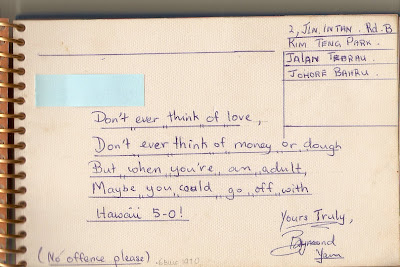 2, JLN. INTAN. Rd. B
KIM TENG PARK.
JALAN TEBRAU.
JOHORE BAHRU.
Don't ever think of love,
Don't ever think of money or dough
But when you're an adult,
Maybe you could go off with
Hawaii 5-0!
Yours Truly,
Raymond
Yam
(No offence please)